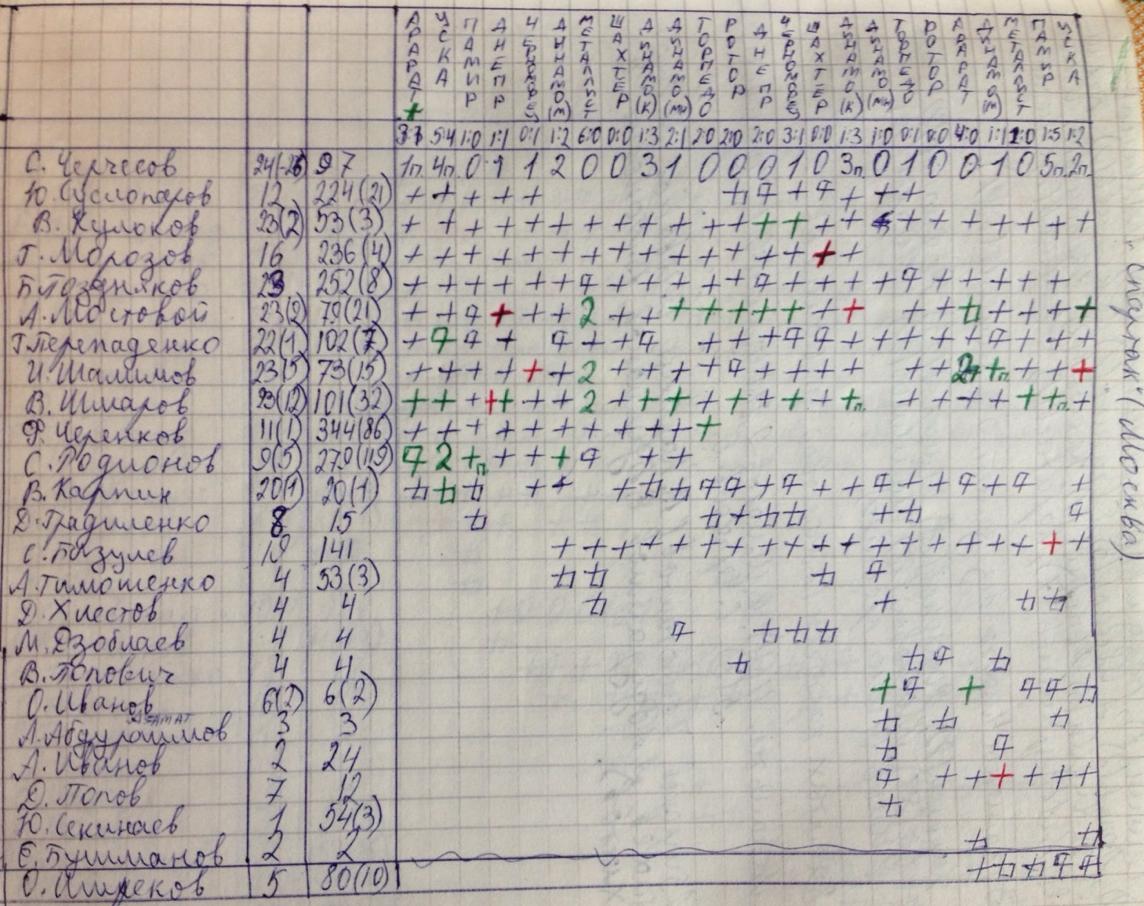 АРАРАТ ЦСКА ПАМИР ДНЕПР ЧЕРНОМОРЕЦ ДИНАМО(М) МЕТАЛЛИСТ ШАХТЕР ДИНАМО(К) ДИНАМО(МН) ТОРПЕДО РОТОР ДНЕПР ЧЕРНОМОРЕЦ ШАХТЕР ДИНАМО(К) ДИНАМО(МН) ТОРПЕДО РОТОР АРАРАТ ДИНАМО(М) МЕТАЛЛИСТ ПАМИР ЦСКА
5:4 1:0 1:1 0:1 1:2 6:0 0:0 1:3 2:1 2:0 2:0 2:0 3:1 0:0 1:3 1:0 0:1 0:0 4:0 1:1 1:5 1:2
С. Черчесов 24(-26) 97 1п. 4п. 0 1 1 2 0 0 3 1 0 0 0 1 0 3п. 0 1 0 0 1 0 5п. 2п.
Ю. Суслопаров 12 224(21)
В. Кульков 23(2) 53(3)
Г. Морозов 16 236(4)
Б. Поздняков 23 252(8)
А. Мостовой 23(2) 79(21)
Г. Перепаденко 22(1) 102(7)
И. Шалимов 23(5) 73(15)
В. Шмаров 23(12) 101(32)
Ф. Черенков 11(1) 344(86)
С. Родионов 9(5) 279(119)
В. Карпин 20(1) 20(1)
Д. Градиленко 8 15
С. Базулев 18 141
А. Тимошенко 4 53(3)
Д. Хлестов 4 4
М. Дзоблаев 4 4
В. Попович 4 4
О. Иванов 6(2) 6(2)
А. Абдураимов 3 3
А. Иванов 2 24
Д. Попов 7 12
Ю. Секинаев 1 54(3)
Е. Бушманов 2 2
О. Имреков 5 80(10)
Спартак (Москва).